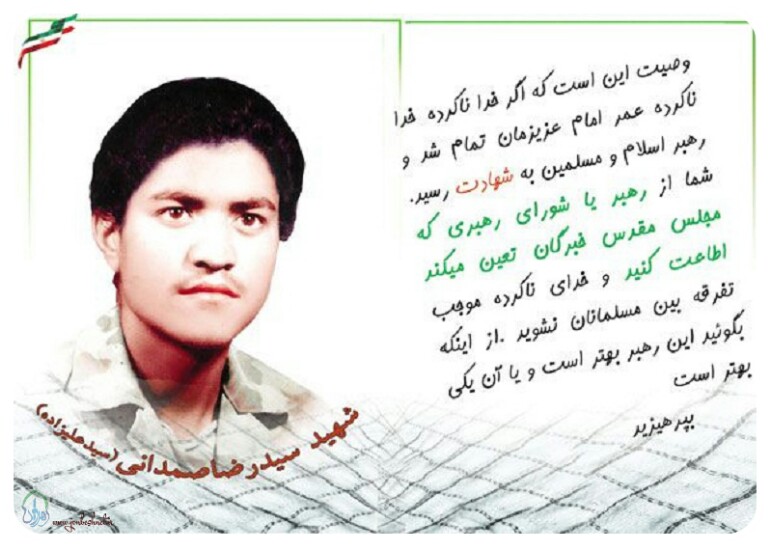 وصیت این است که اگر خدا ناکرده خدا
ناکرده عمر امام عزیزمان تمام شد و
رهبر اسلام و مسلمین به شهادت رسید.
شما از رهبر یا شورای رهبری که
مجلس مقدس خبرگان تعین میکند
اطاعت کنید و خدای ناکرده موجب
تفرقه بین مسلمانان نشوید .از اینکه
بگوئید این رهبر بهتر است و یا آن یکی
بهتر است
بپرهیزید
شهید سیدرضاصمدانی (سیدعلیزاده)